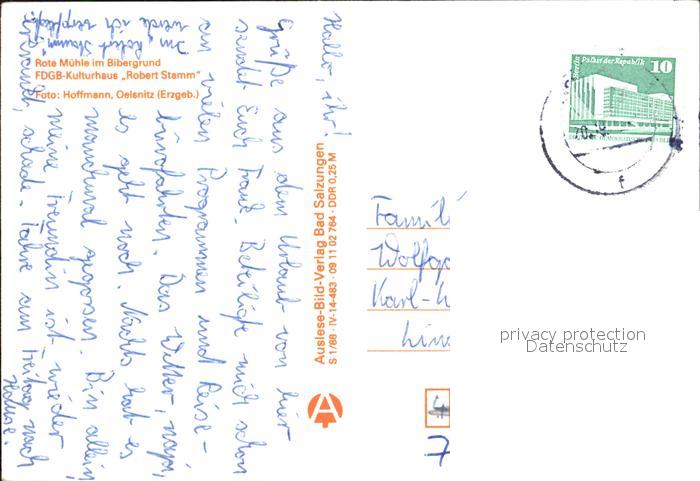 Rote Mühle im Bibergrund
FDGB-Kulturhaus „Robert Stamm"
Foto: Hoffmann, Oelsnitz (Erzgeb.)
Hallo, ihr!
Grüße aus dem Urlaub von hier
sendet Euch Traut. Beteilige mich schon
an vielen Programmen und Reise-
bürofahrten. Das Wetter, naja,
es geht noch. Nachts hat es
manchmal gegossen. Bin allein
meine Freundin ist wieder
schade. Fahre am Freitag nach
Hause.
Im „Robert Stamm"
werde ich verpflegt.
Auslese-Bild-Verlag Bad Salzungen
S 1/88 · IV-14-483 · 09 11 02 764 · DDR 0,25 M
Palast der Republik
10
Famili
Wolfga
Karl-
Lin
7
privacy protection
Datenschutz